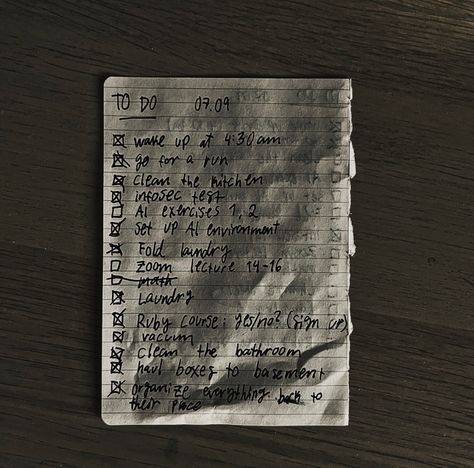 TO DO 07.09
wake up at 4:30am
go for a run
clean the kitchen
infosec test
AI exercises 1, 2
set up AI environment
Fold laundry
Zoom lecture 14-16
math
Laundry
Ruby course: yes/no? (sign up)
vacuum
clean the bathroom
haul boxes to basement
organize everything back to
their place